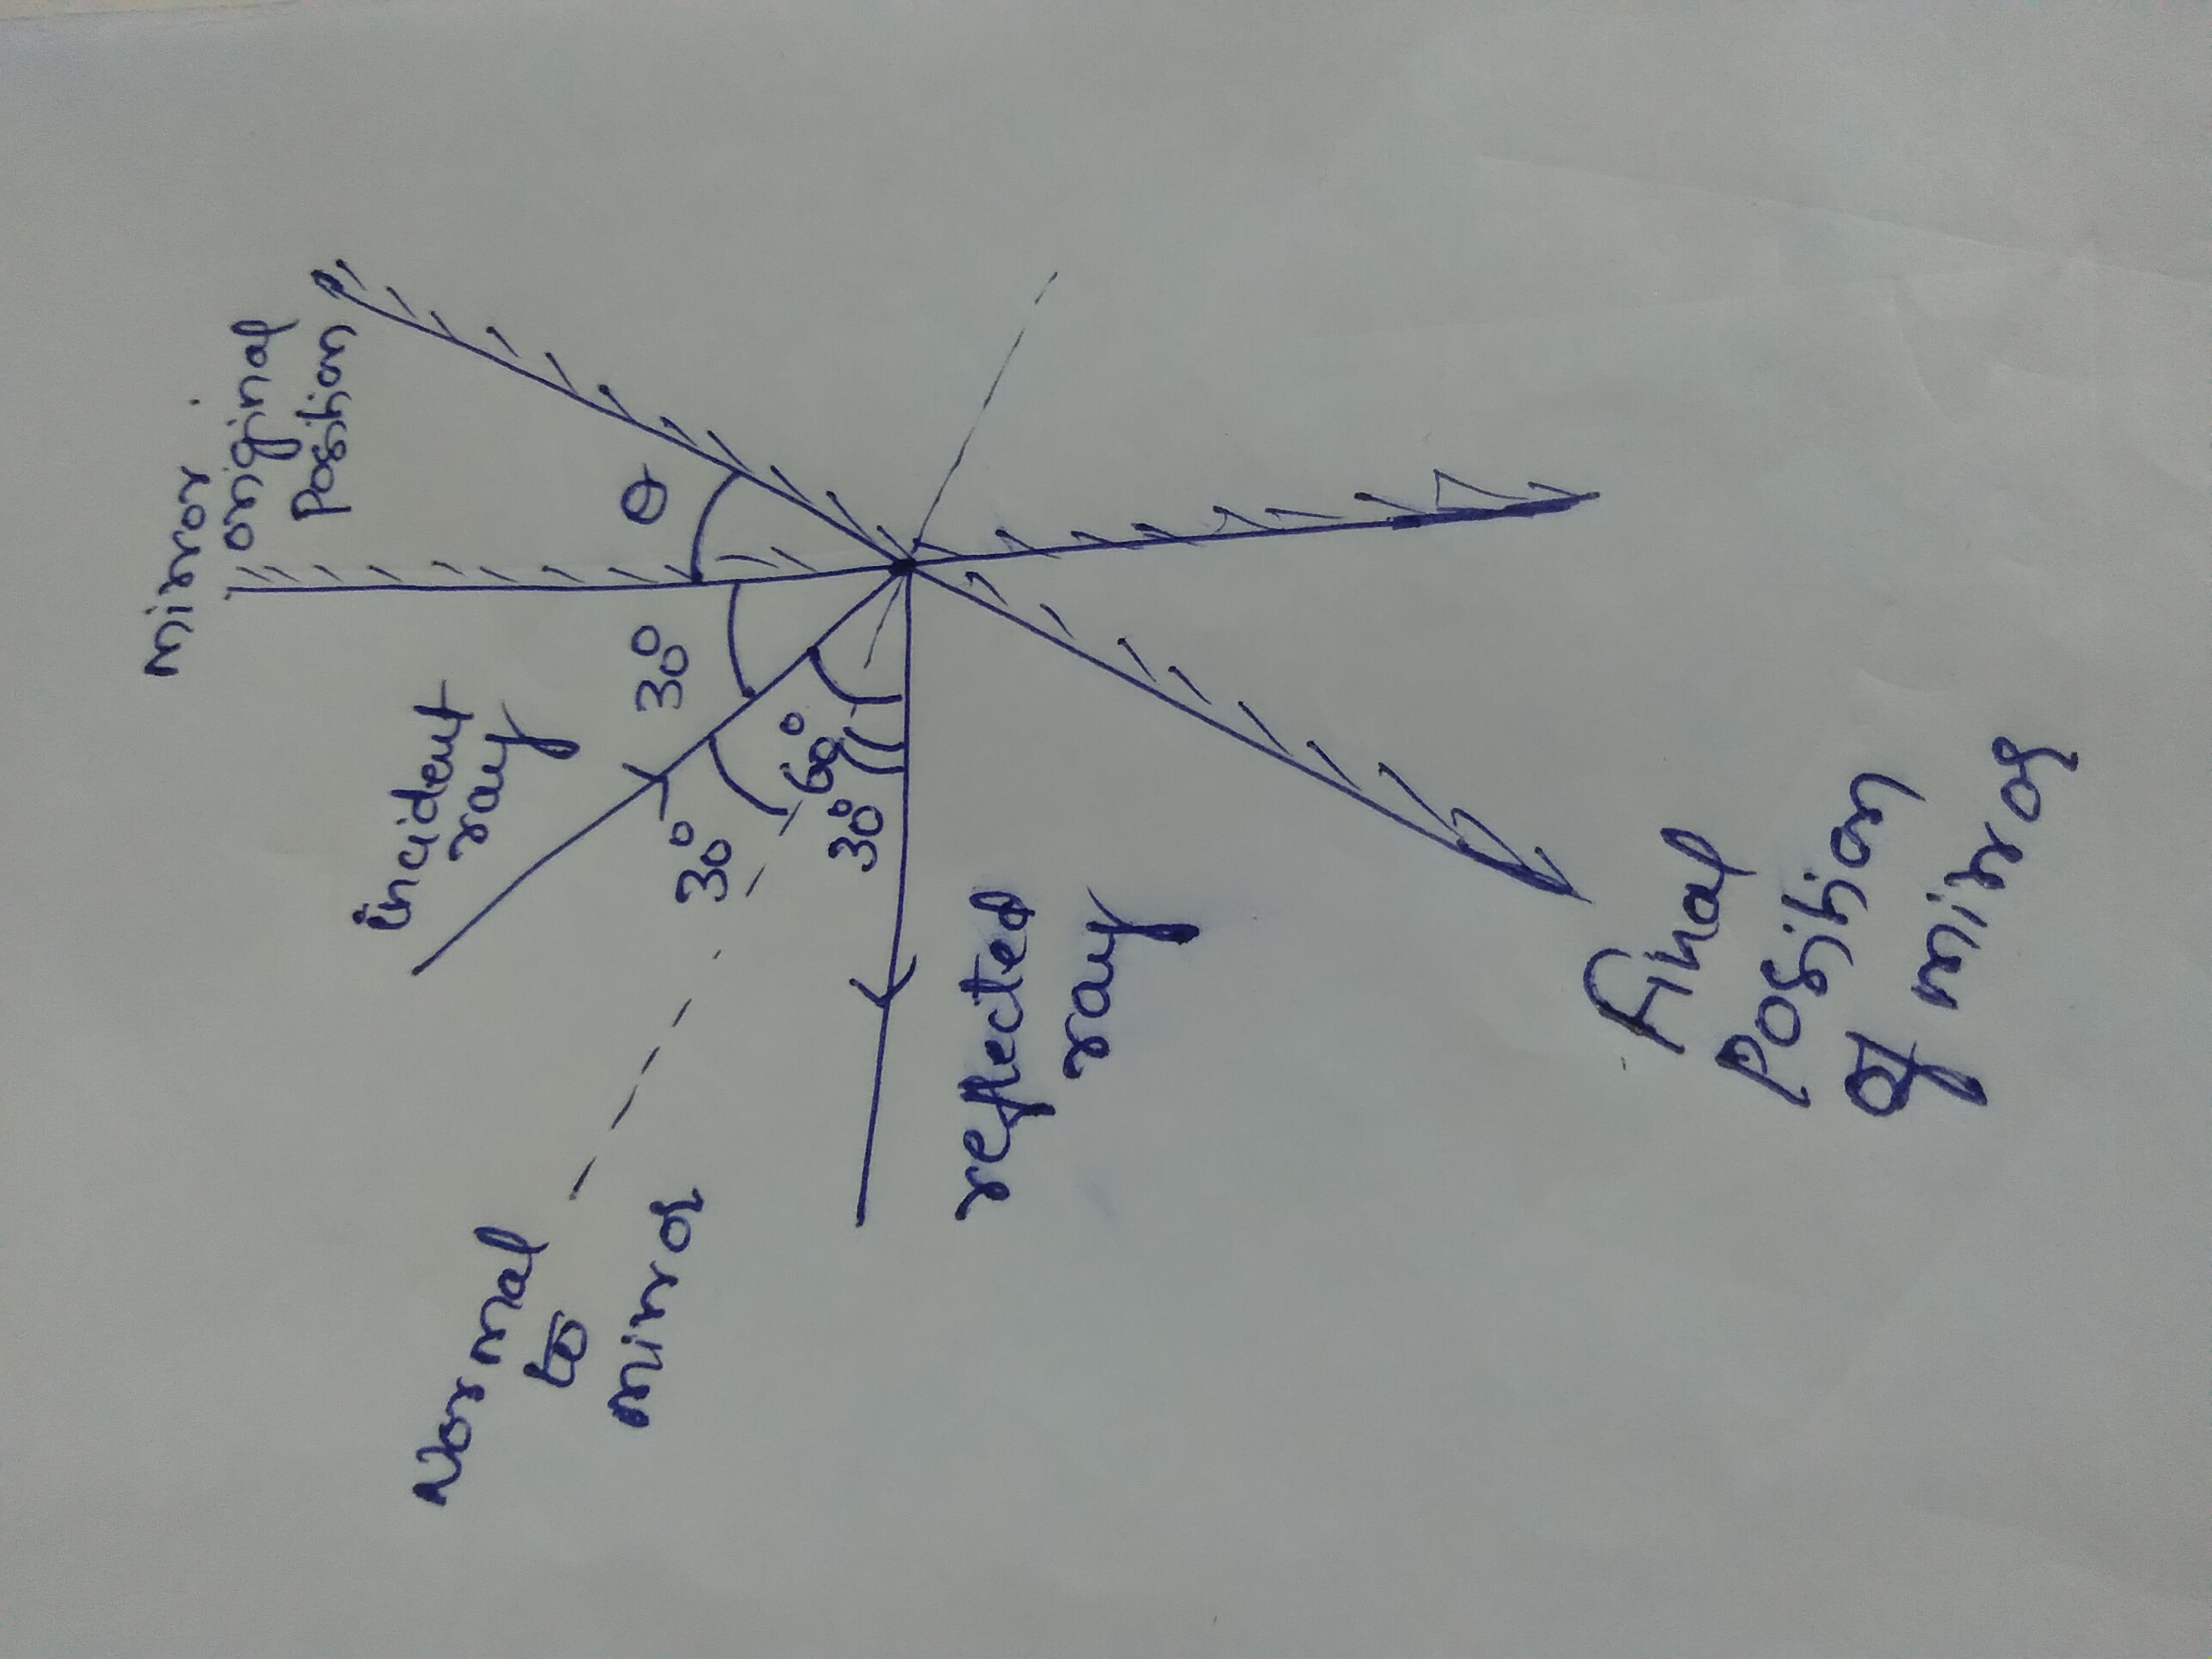 mirror
original
Position
θ
30°
incident
ray
60°
30°
30°
reflected
ray
Normal
to
mirror
final
Position
of mirror